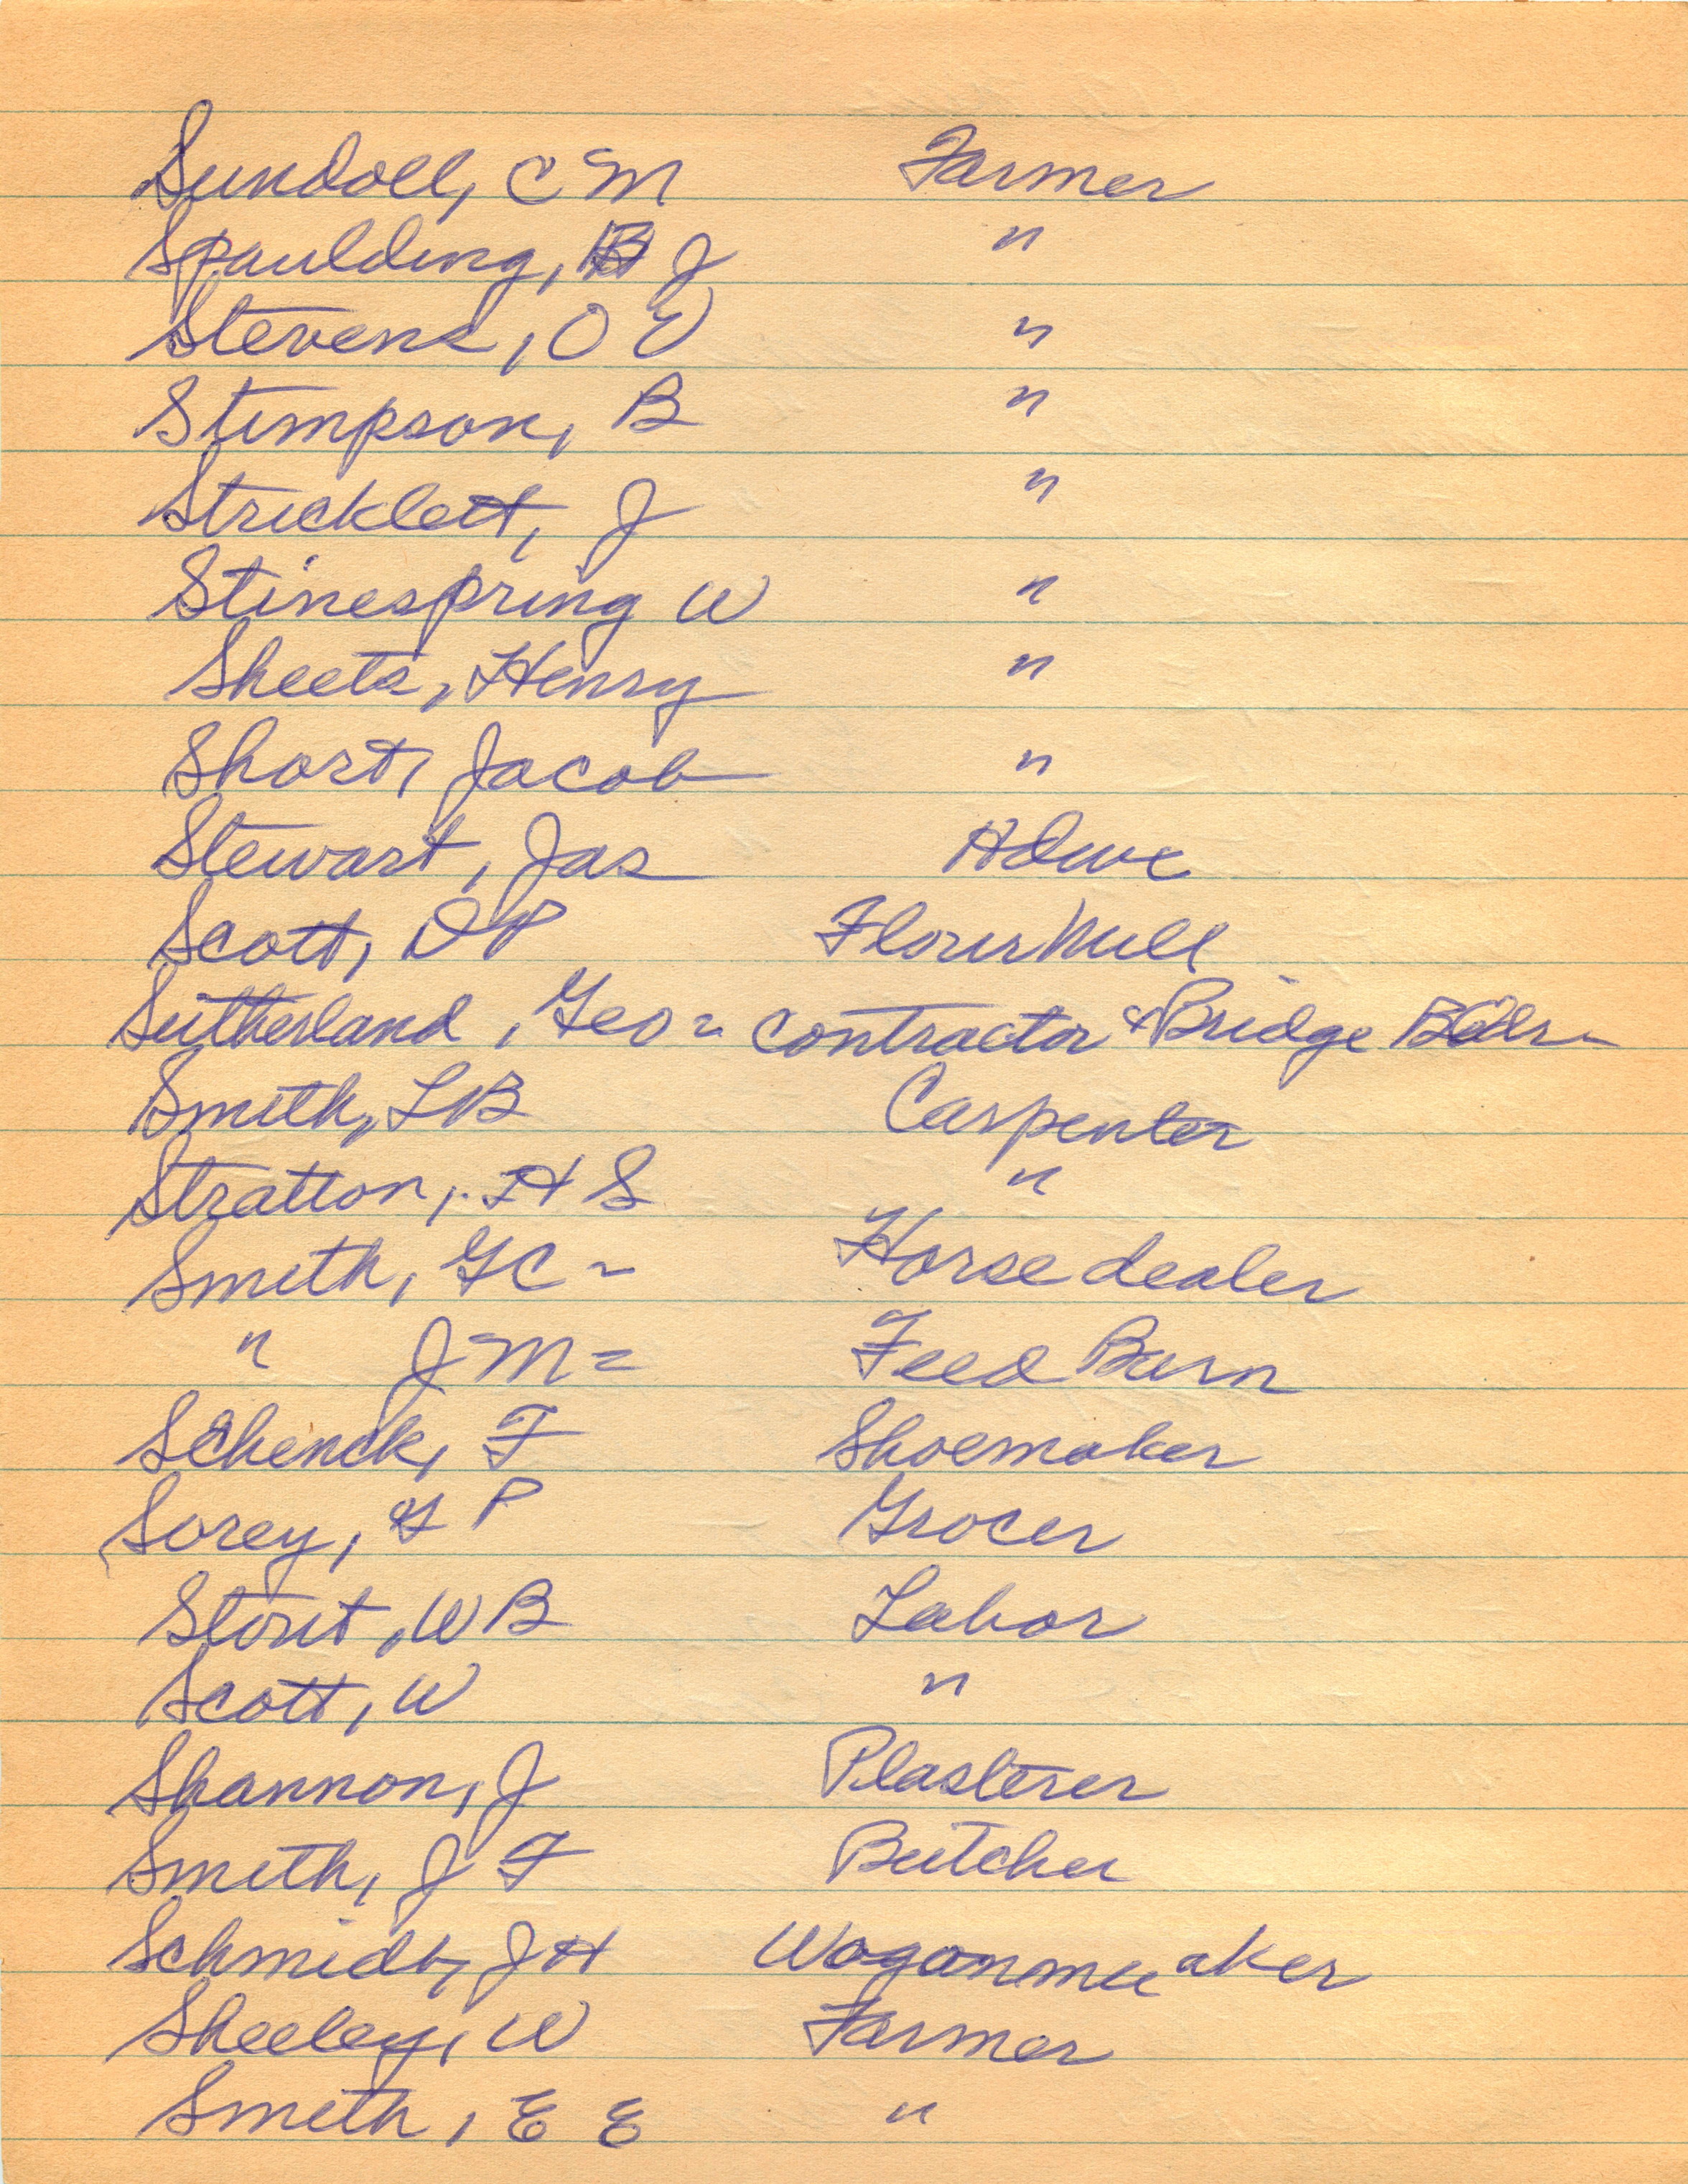 Sundoll, C M Farmer
Spaulding, B J "
Stevens, O E "
Stimpson, B "
Stricklett, J "
Stinespring W "
Sheets, Henry "
Short, Jacob "
Stewart, Jas Hdwe
Scott, D P Flour Mill
Sutherland, Geo = Contractor & Bridge Bldr -
Smith, L B Carpenter
Stratton, H S "
Smith, G C - Horse dealer
" J M = Feed Barn
Schenck, F Shoemaker
Sorey, G P Grocer
Stout, W B Labor
Scott, W "
Shannon, J Plasterer
Smith, J F Butcher
Schmidt, J H Wagonmaker
Sheeley, W Farmer
Smith, E E "